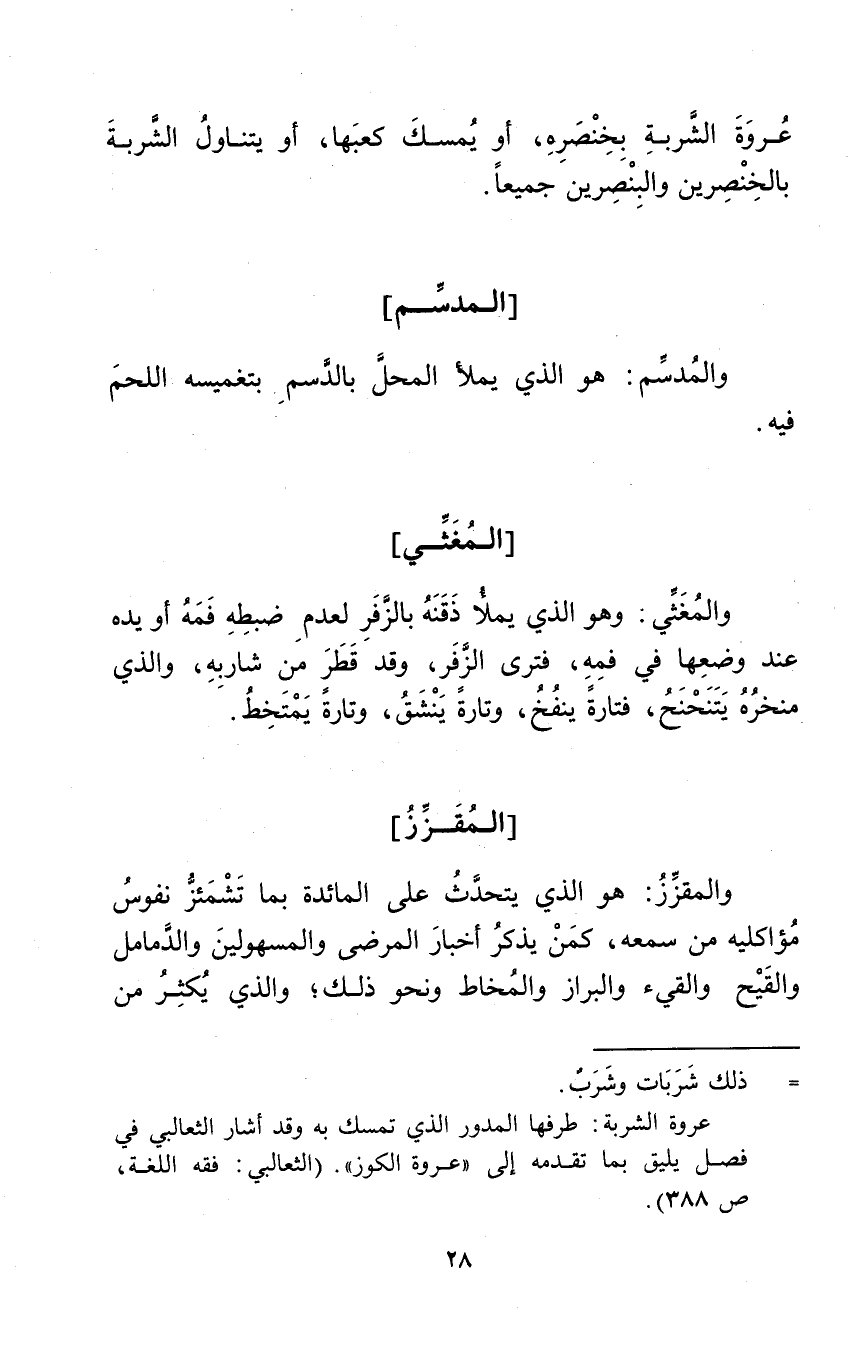 عُـروَةَ الشَّربـةِ بِخِنْصَرِهِ، أو يُمسـكَ كعبَها، أو يتنـاولُ الشَّربـةَ
بالخِنْصِرين والبِنْصِرين جميعاً.
[الـمدسِّـــم]
والمُدسِّم: هو الذي يملأ المحلَّ بالدَّسمِ بتغميسه اللحمَ
فيه.
[الـمُغَثِّــي]
والمُغَثِّي: وهو الذي يملأُ ذَقَنَهُ بالزَّفَرِ لعدمِ ضبطِهِ فَمَهُ أو يده
عند وضعِها في فمِهِ، فترى الزَّفَر، وقد قَطَرَ من شاربِهِ، والذي
منخرُهُ يَتَنَحْنَحُ، فتارةً ينفُخُ، وتارةً يَنْشَقُ، وتارةً يَمْتَخِطُ.
[الـمُقَــزِّزُ]
والمقزِّزُ: هو الذي يتحدَّثُ على المائدة بما تَشْمَئزُّ نفوسُ
مُؤاكليه من سمعه، كمَنْ يذكرُ أخبارَ المرضى والمسهولينَ والدَّمامل
والقَيْح والقيء والبراز والمُخاط ونحو ذلـك؛ والذي يُكثِـرُ من
= ذلك شَرَبَات وشَرَبٌ.
عروة الشربة: طرفها المدور الذي تمسك به وقد أشار الثعالبي في
فصـل يليق بما تقـدمه إلى «عـروة الكوز». (الثعالبي: فقه اللغـة،
ص ٣٨٨).
٢٨